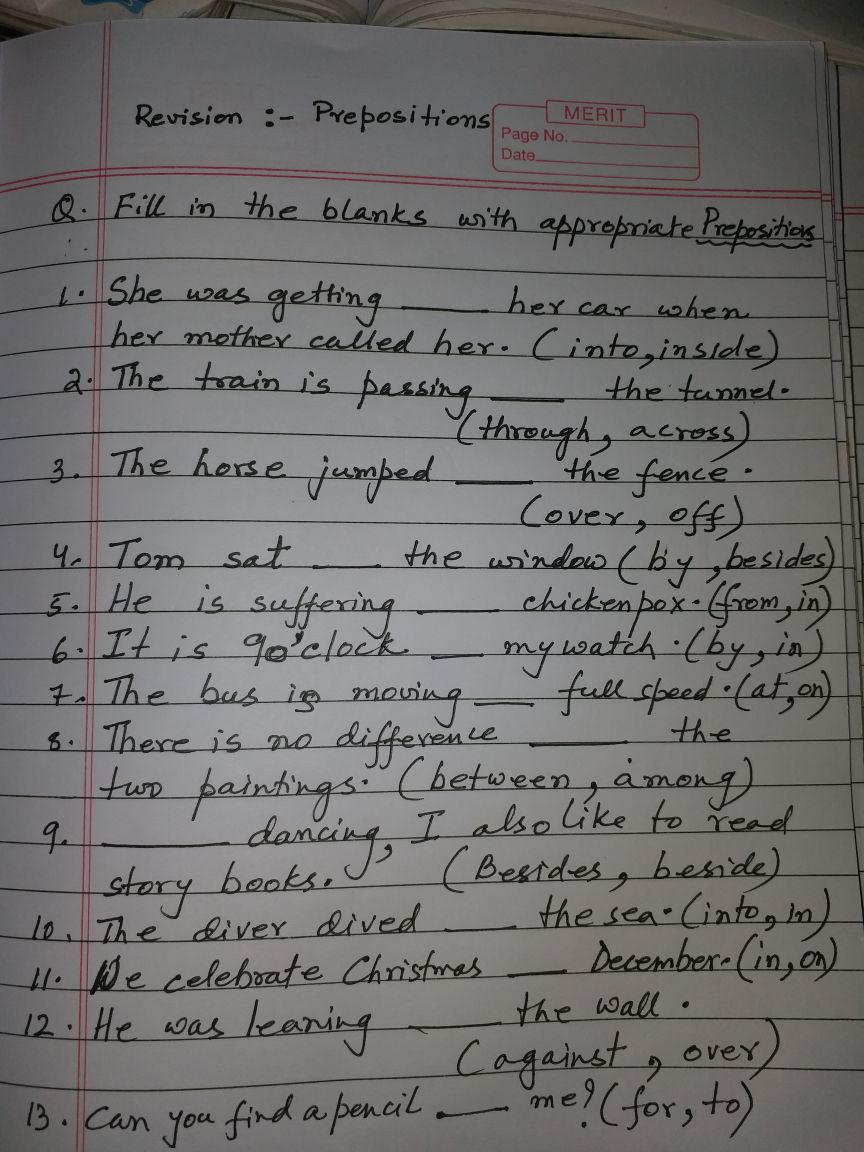 Revision :- Prepositions
MERIT
Page No.
Date
Q. Fill in the blanks with appropriate Prepositions
1. She was getting ____ her car when
her mother called her. (into, inside)
2. The train is passing ____ the tunnel.
(through, across)
3. The horse jumped ____ the fence.
(over, off)
4. Tom sat ____ the window (by, besides)
5. He is suffering ____ chickenpox. (from, in)
6. It is 9o'clock ____ my watch. (by, in)
7. The bus is moving ____ full speed. (at, on)
8. There is no difference ____ the
two paintings. (between, among)
9. ____ dancing, I also like to read
story books. (Besides, beside)
10. The diver dived ____ the sea. (into, in)
11. We celebrate Christmas ____ December. (in, on)
12. He was leaning ____ the wall.
(against, over)
13. Can you find a pencil ____ me? (for, to)